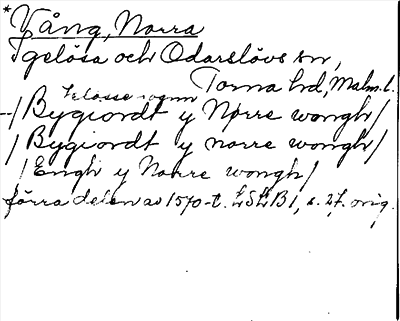 *Vång, Norra
Igelösa och Odarslövs snr,
Torna hd, Malm. l.
Igelösse sognn
--/Bygiordt y Nørre wongh/
/Bygiordt y norre wongh/
/Engh y Norre wongh/
förra delen av 1570-t. LSLB 1, s. 27. orig.